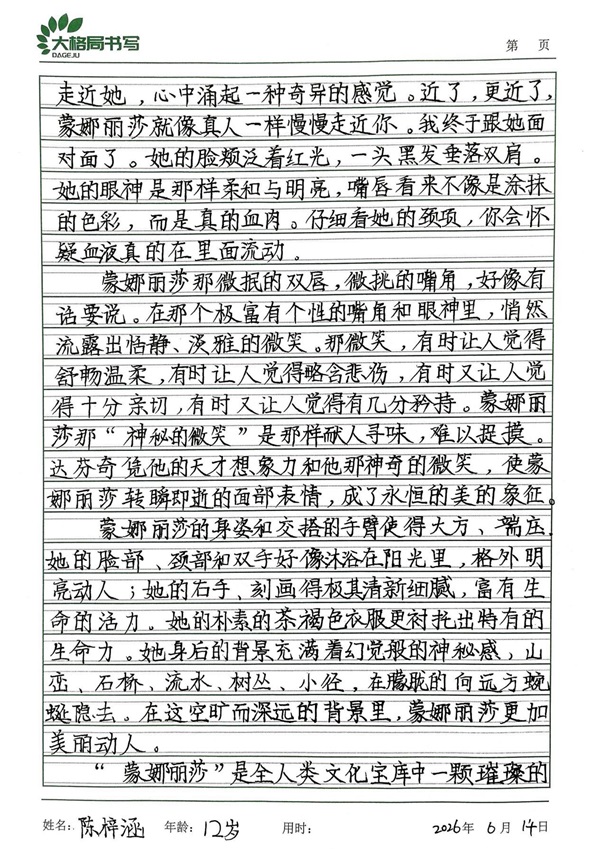 大格局书写
DAGEJU
第 页
走近她，心中涌起一种奇异的感觉。近了，更近了，
蒙娜丽莎就像真人一样慢慢走近你。我终于跟她面
对面了。她的脸颊泛着红光，一头黑发垂落双肩。
她的眼神是那样柔和与明亮，嘴唇看来不像是涂抹
的色彩，而是真的血肉。仔细看她的颈项，你会怀
疑血液真的在里面流动。
蒙娜丽莎那微抿的双唇，微挑的嘴角，好像有
话要说。在那个极富有个性的嘴角和眼神里，悄然
流露出恬静、淡雅的微笑。那微笑，有时让人觉得
舒畅温柔，有时让人觉得略含悲伤，有时又让人觉
得十分亲切，有时又让人觉得有几分矜持。蒙娜丽
莎那“神秘的微笑”是那样耐人寻味，难以捉摸。
达芬奇凭他的天才想象力和他那神奇的微笑，使蒙
娜丽莎转瞬即逝的面部表情，成了永恒的美的象征。
蒙娜丽莎的身姿和交搭的手臂使得大方、端庄。
她的脸部、颈部和双手好像沐浴在阳光里，格外明
亮动人；她的右手、刻画得极其清新细腻，富有生
命的活力。她的朴素的茶褐色衣服更衬托出特有的
生命力。她身后的背景充满着幻觉般的神秘感，山
峦、石桥、流水、树丛、小径，在朦胧的向远方蜿
蜒隐去。在这空旷而深远的背景里，蒙娜丽莎更加
美丽动人。
“蒙娜丽莎”是全人类文化宝库中一颗璀璨的
姓名：陈梓涵 年龄：12岁 用时： 2026年 6月 14日